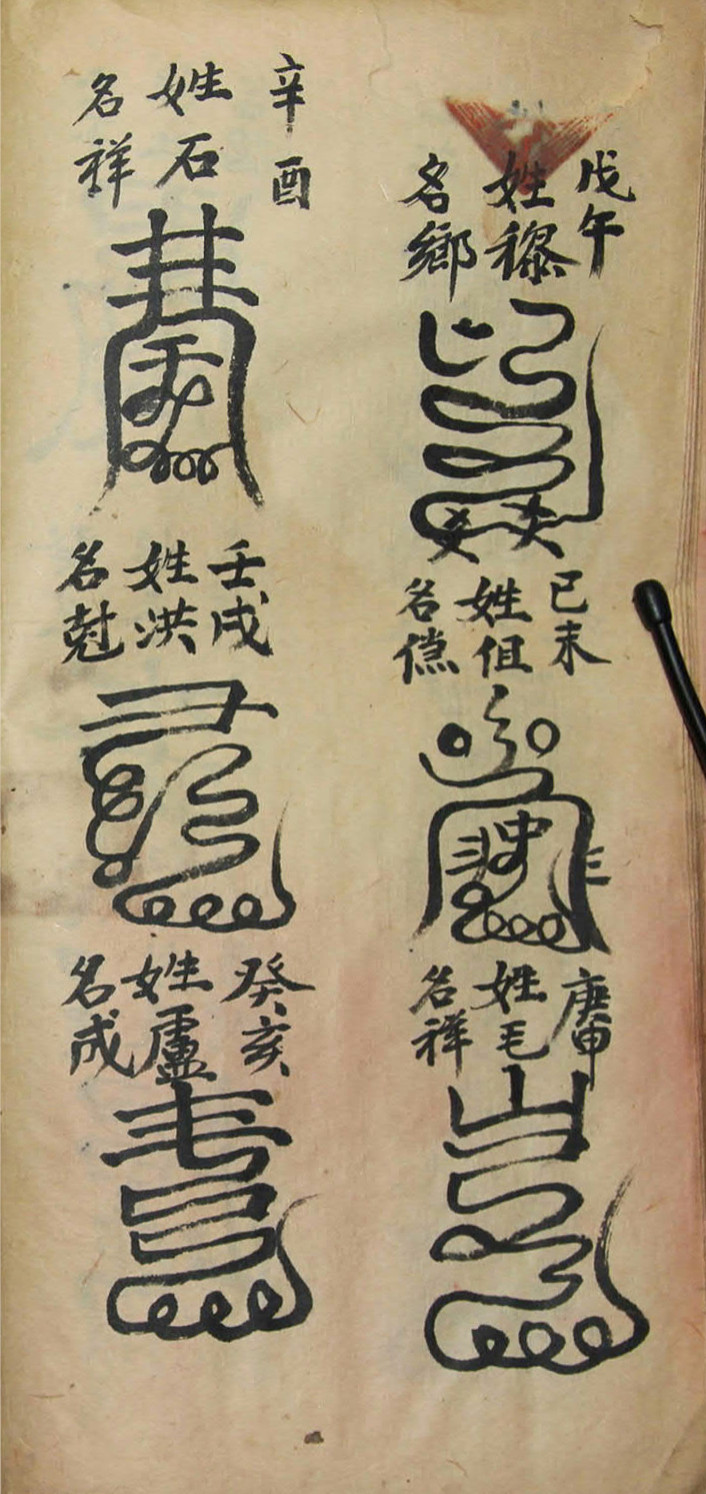 戊午
姓黎
名鄉
己未
姓但
名儻
庚申
姓毛
名祥
辛酉
姓石
名祥
壬戌
姓洪
名尅
癸亥
姓盧
名成